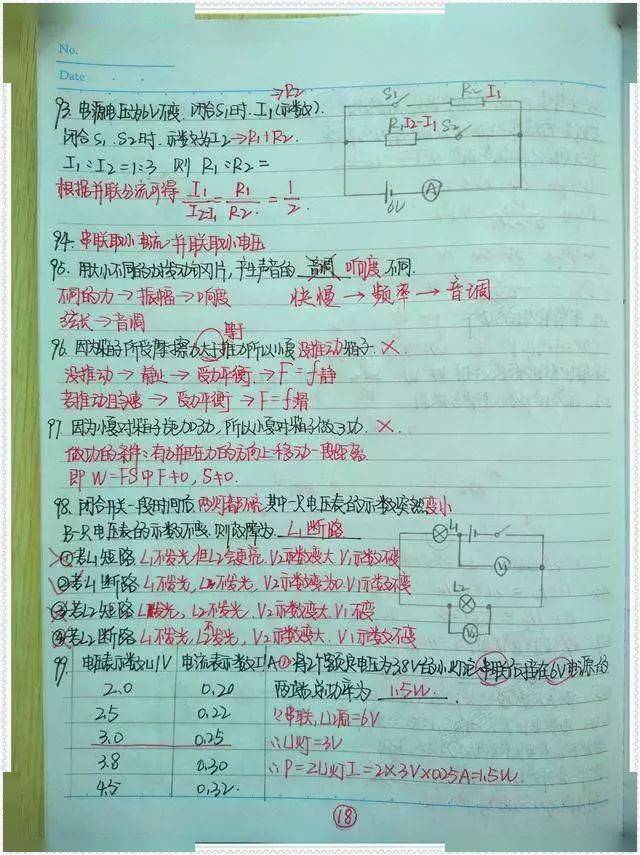 No.
Date
→R2
93. 电源电压为6V不变. 闭合S1时. I1(示数).
闭合S1. S2时. 示数为I2→R1+R2.
I1:I2=1:3 则 R1:R2=
根据并联分流可得 I1/I2-I1 = R1/R2 = 1/2.
S1 R2 I1
R1 I2-I1 S2
6V A
94. 串联取小电流 并联取小电压
95. 用大小不同的力拨动钢片, 产生声音的 音调 响度 不同.
不同的力→振幅→响度 快慢→频率→音调
弦长→音调
等于
96. 因为箱子所受摩擦力大于推力所以小夏没推动箱子. ×
没推动→静止→受力平衡.→F=f静
若推动且匀速→受力平衡→F=f滑
97. 因为小夏对箱子施加了力, 所以小夏对箱子做了功. ×.
做功的条件:有力且在力的方向上移动一段距离.
即 W=FS中F≠0, S≠0.
98. 闭合开关一段时间后, 两灯都不亮, 其中一只电压表的示数突然变小
另一只电压表的示数不变. 则故障为 L1断路
①若L1短路. L1不发光,但L2会更亮, V2示数变大, V1示数不变
②若L1断路. L1不发光, L2不发光, V2示数变为0. V1示数不变
③若L2短路 L1发光, L2不发光, V2示数变大. V1不变
④若L2断路 L1不发光, L2不发光, V2示数变大. V1示数不变
L1
V1
L2
V2
99. 电压表示数U/V 电流表示数I/A ①将2个额定电压为3.8V的小灯泡串联后接在6V电源的
2.0 0.20 两端,总功率为 1.5W.
2.5 0.22 ∵串联,U源=6V
3.0 0.25 ∴U灯=3V
3.8 0.30 ∴P=2U灯I=2×3V×0.25A=1.5W.
4.5 0.32
18